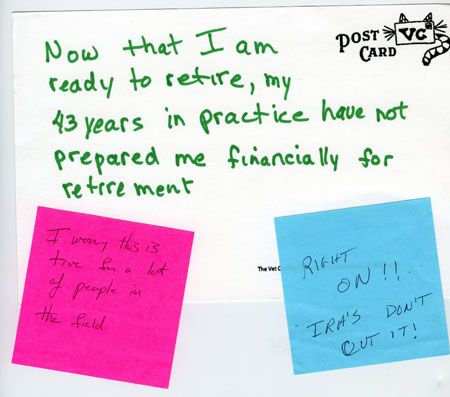 Now that I am
ready to retire, my
43 years in practice have not
prepared me financially for
retirement
POST
CARD
VC
I worry this is
true for a lot
of people in
the field
The Vet C
RIGHT
ON!!
IRA'S DON'T
CUT IT!